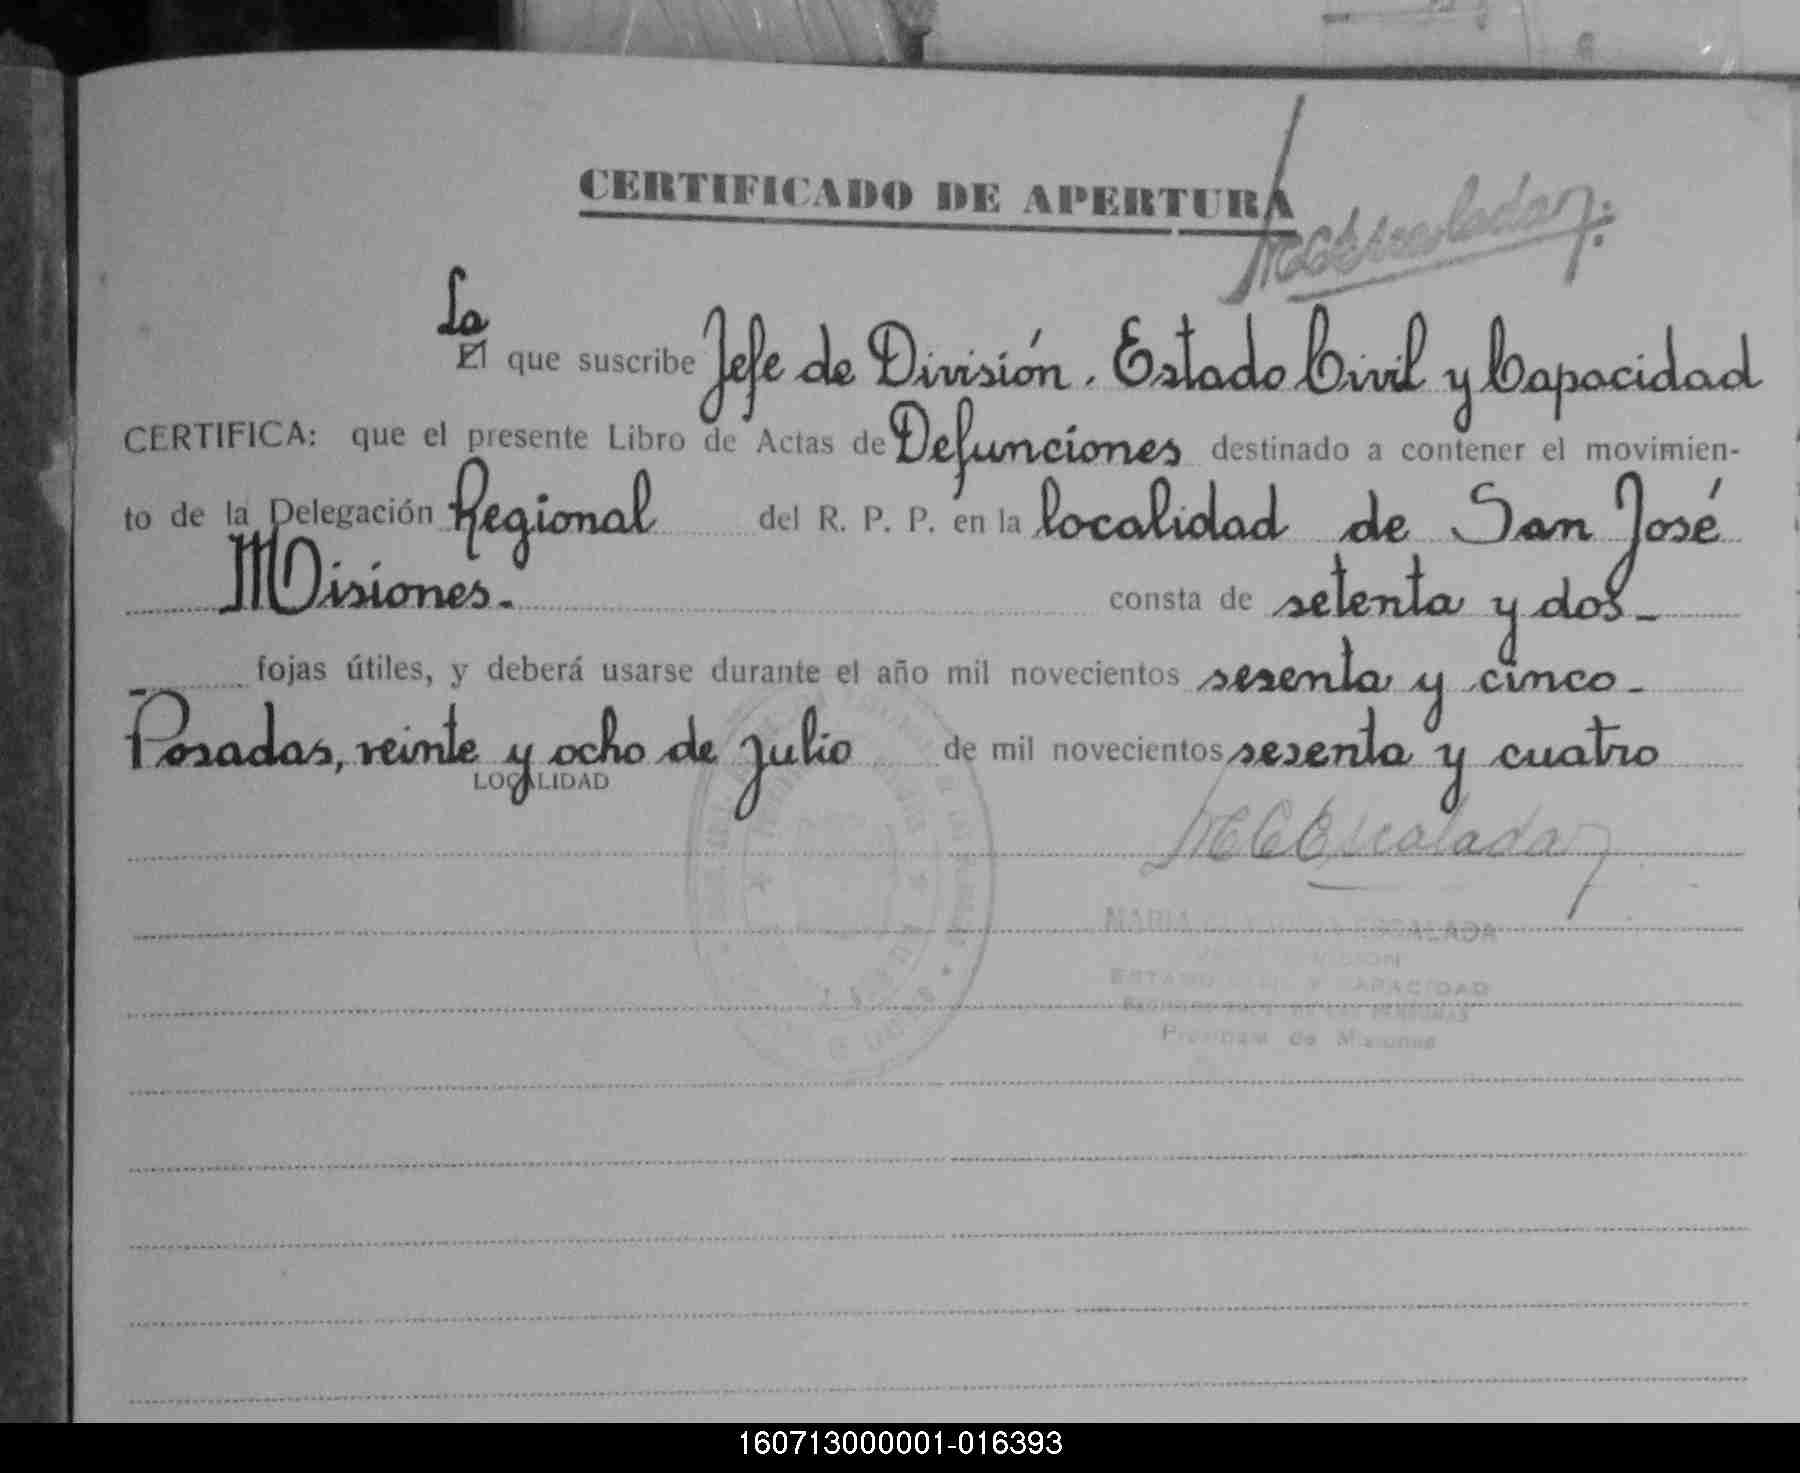 CERTIFICADO DE APERTURA
MCEscalada
La
El que suscribe Jefe de División. Estado Civil y Capacidad
CERTIFICA: que el presente Libro de Actas de Defunciones destinado a contener el movimien-
to de la Delegación Regional del R. P. P. en la localidad de San José
Misiones.- consta de setenta y dos-
- fojas útiles, y deberá usarse durante el año mil novecientos sesenta y cinco-
Posadas, veinte y ocho de julio de mil novecientos sesenta y cuatro
LOCALIDAD
MCEscalada
MARIA ESCALADA
DIVISION
ESTADO CIVIL Y CAPACIDAD
DE LAS PERSONAS
Provincia de Misiones
160713000001-016393